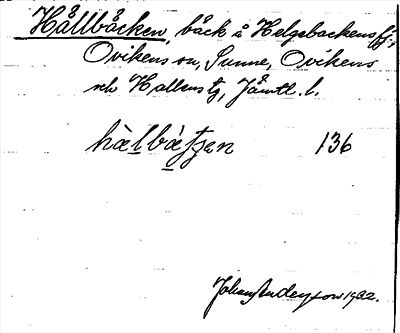 Hållbäcken, bäck å Helgebackens fj.,
Ovikens sn, Sunne, Ovikens
och Hallens tg, Jämtl. l.
hȧl̲bȧ̲ƫʒen 136
1922.